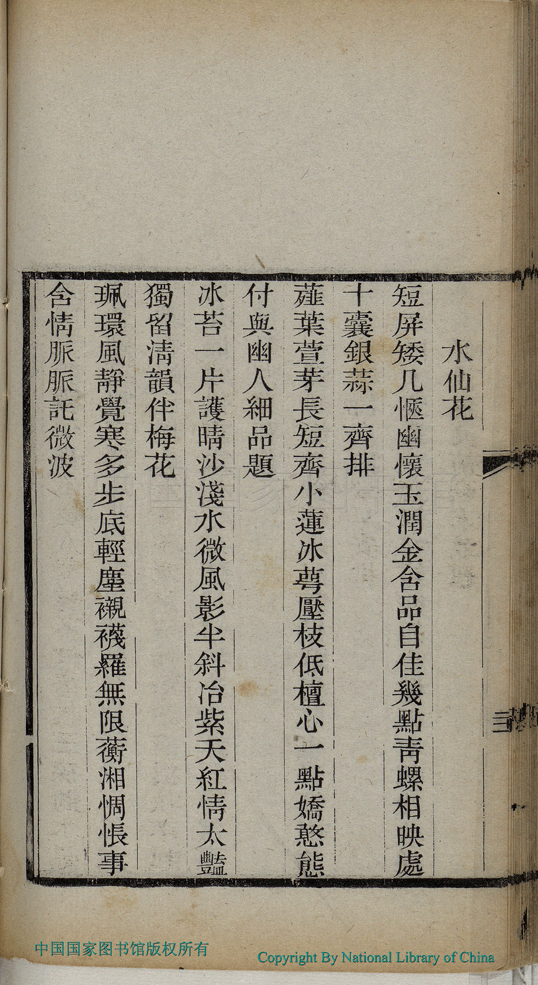 水仙花
短屏矮几愜幽懷玉潤金含品自佳幾點靑螺相映處
十囊銀蒜一齊排
薤葉萱芽長短齊小蓮冰萼壓枝低檀心一點嬌憨態
付與幽人細品題
冰苔一片護晴沙淺水微風影半斜冶紫天紅情太豔
獨留淸韻伴梅花
珮環風靜覺寒多步底輕塵襯襪羅無限蘅湘惆悵事
含情脈脈託微波
中国国家图书馆版权所有
Copyright By National Library of China